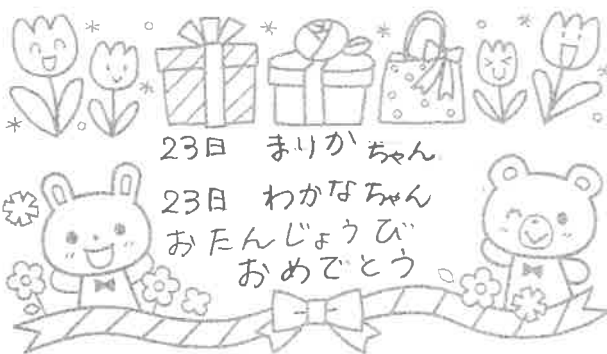 23日 まりかちゃん
23日 わかなちゃん
おたんじょうび
おめでとう